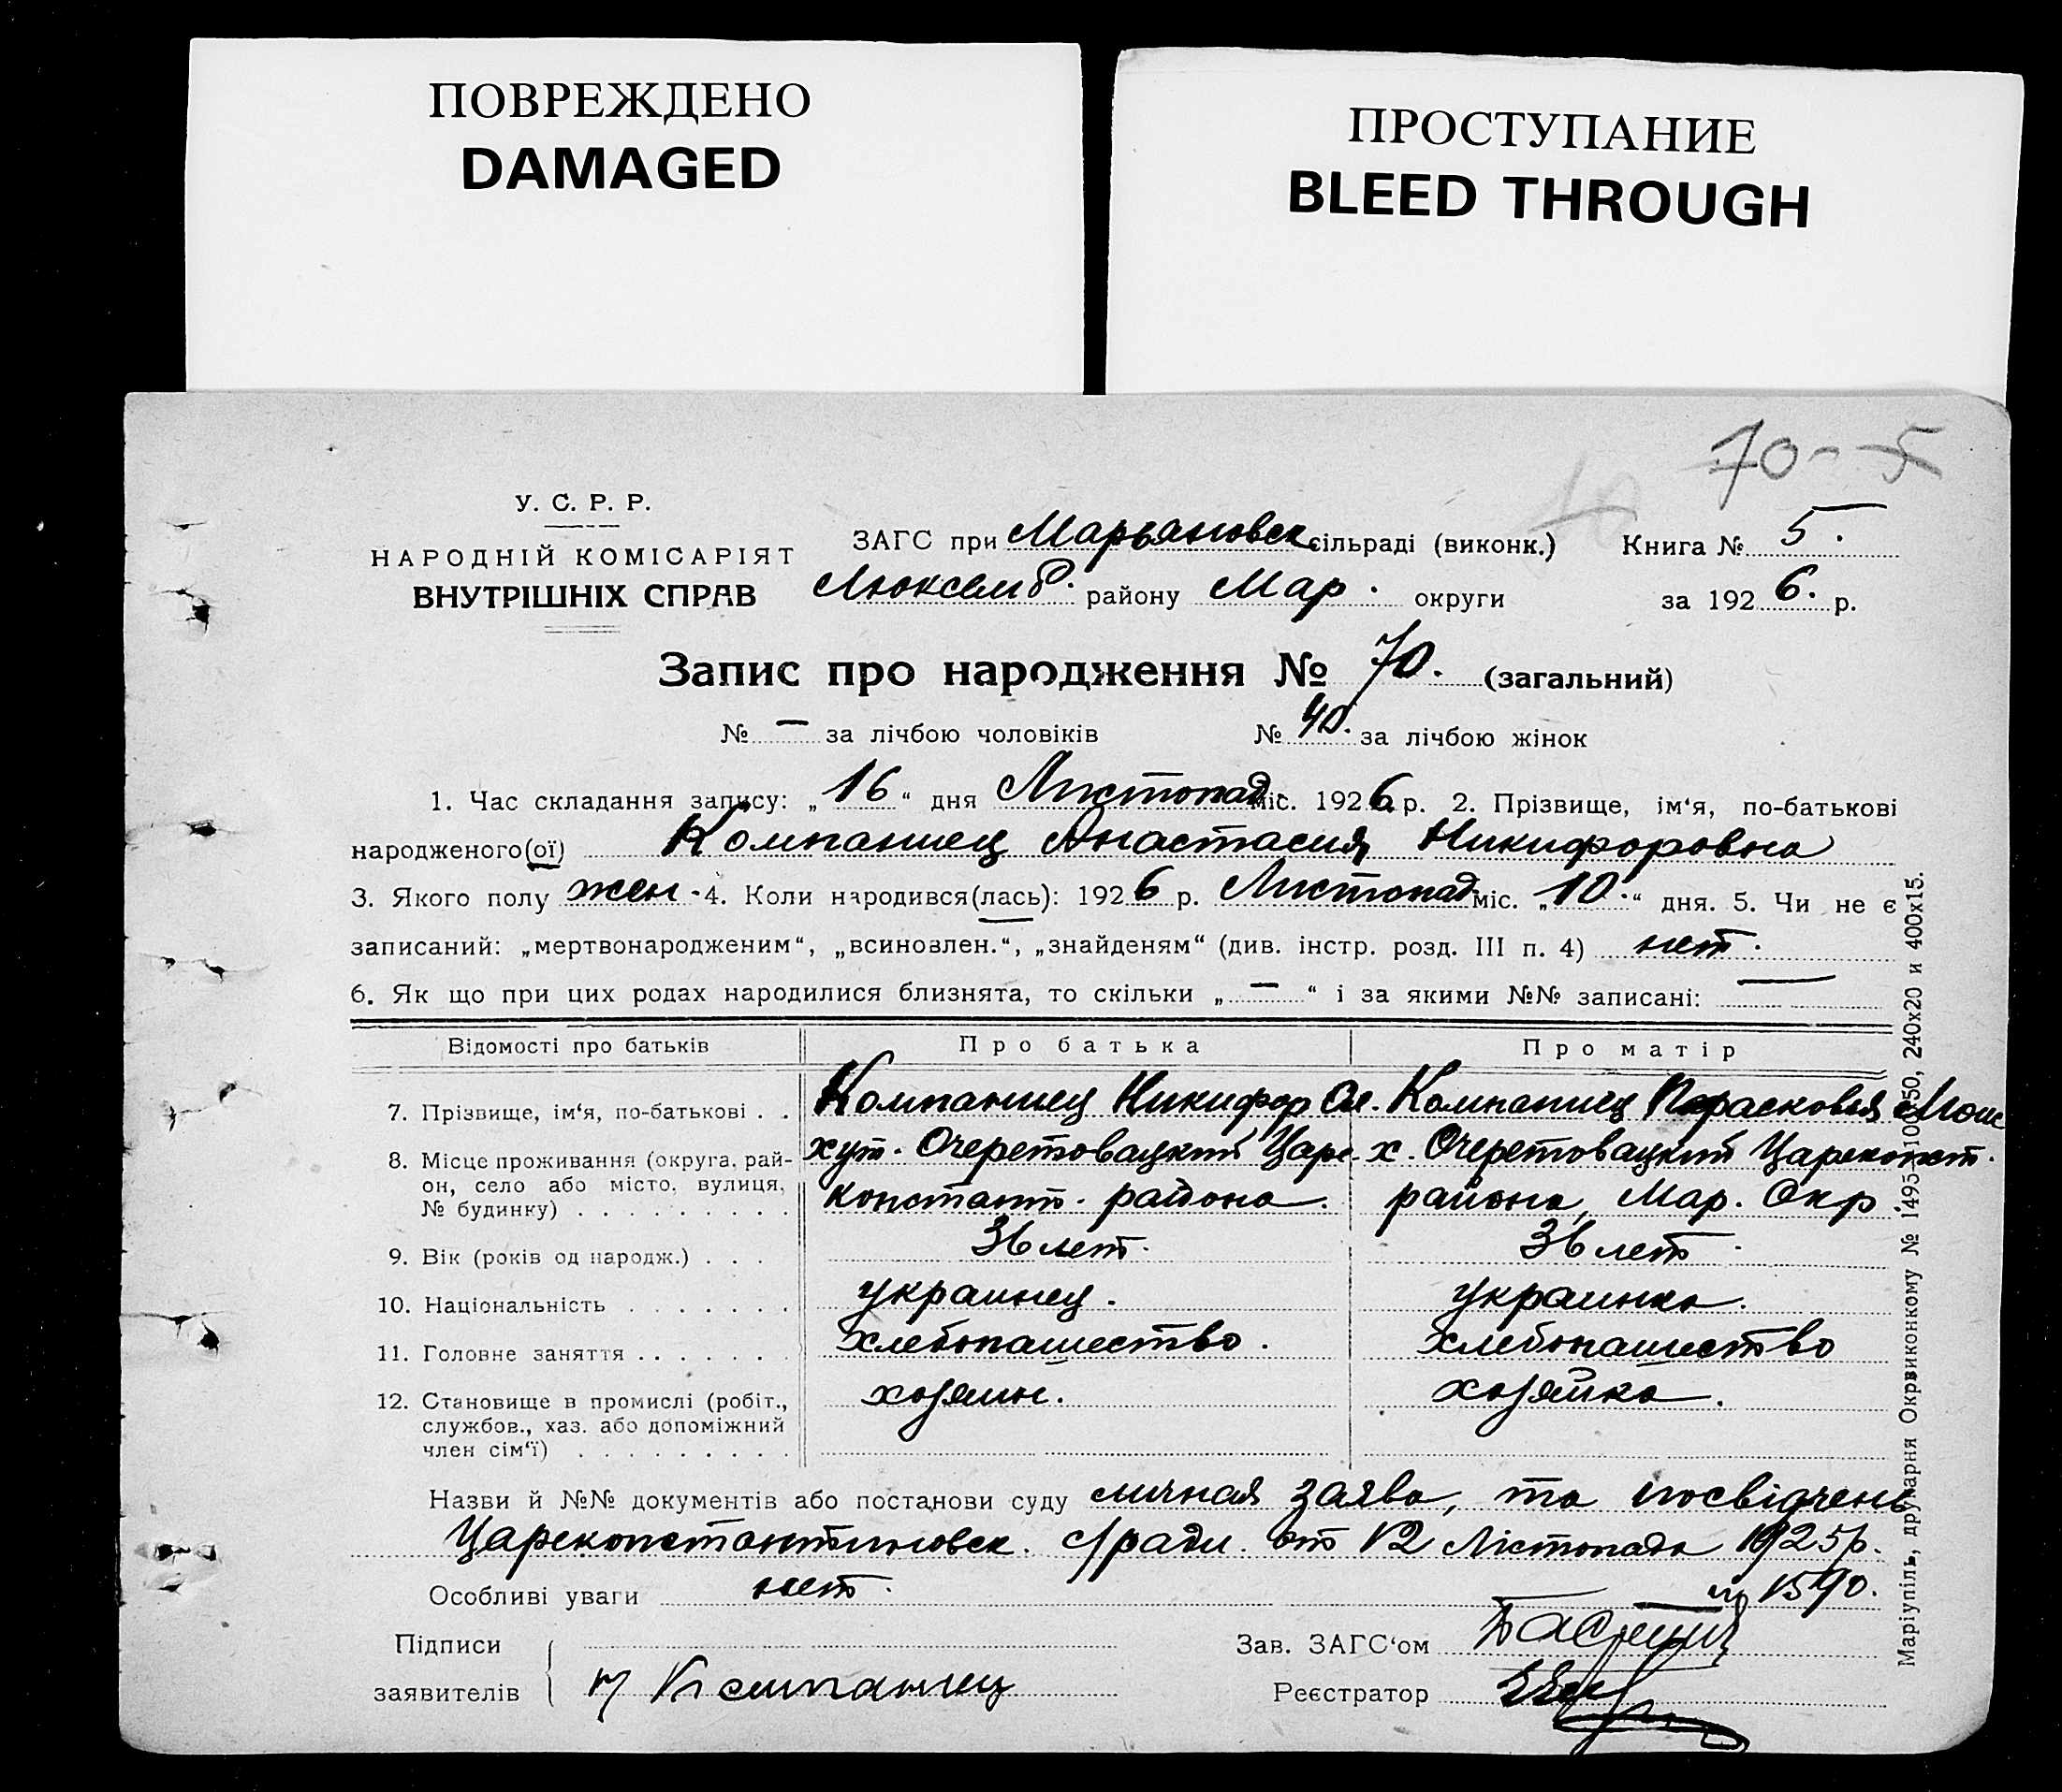 ПОВРЕЖДЕНО
DAMAGED
ПРОСТУПАНИЕ
BLEED THROUGH
70 - 5
У. С. Р. Р.
НАРОДНІЙ КОМІСАРІЯТ
ВНУТРІШНІХ СПРАВ
ЗАГС при Марьяновск сільраді (виконк.) Книга № 5.
Люксемб. району Мар. округи за 1926. р.
Запис про народження № 70. (загальний)
№ — за лічбою чоловіків № 40. за лічбою жінок
1. Час складання запису: „16“ дня Листопад міс. 1926 р. 2. Прізвище, ім‘я, по-батькові
народженого(ої) Компаниец Анастасия Никифоровна
3. Якого полу жен. 4. Коли народився(лась): 1926 р. Листопад міс. „10.“ дня. 5. Чи не є
записаний: „мертвонародженим“, „всиновлен.“, „знайденям“ (див. інстр. розд. III п. 4) нет.
6. Як що при цих родах народилися близнята, то скільки „—“ і за якими №№ записані: —
Відомості про батьків Про батька Про матір
7. Прізвище, ім‘я, по-батькові . . Компаниец Никифор Компаниец Парасковья Моис
8. Місце проживання (округа, рай-
он, село або місто, вулиця,
№ будинку) . . . . . . . . .
хут. Очеретовацкий Царе-
констант. района.
х. Очеретовацкий Цареконст.
района, Мар. Окр.
9. Вік (років од народж.) . . . 36 лет. 36 лет.
10. Національність . . . . . . . украинец. украинка.
11. Головне заняття . . . . . . . хлебопашество. хлебопашество
12. Становище в промислі (робіт.,
службов., хаз. або допоміжний
член сім‘ї) . . . . . . . . .
хозяин. хозяйка.
Назви й №№ документів або постанови суду личная заява, та посвідчень
Цареконстантиновск. с/ради. от 12 Лістопада 1925р.
Особливі уваги нет. № 1590.
Підписи
заявителів Н Компаниец
Зав. ЗАГС‘ом
Реєстратор
Маріупіль, друкарня Окрвиконкому № 1495-100-50, 240х20 и 400х15.